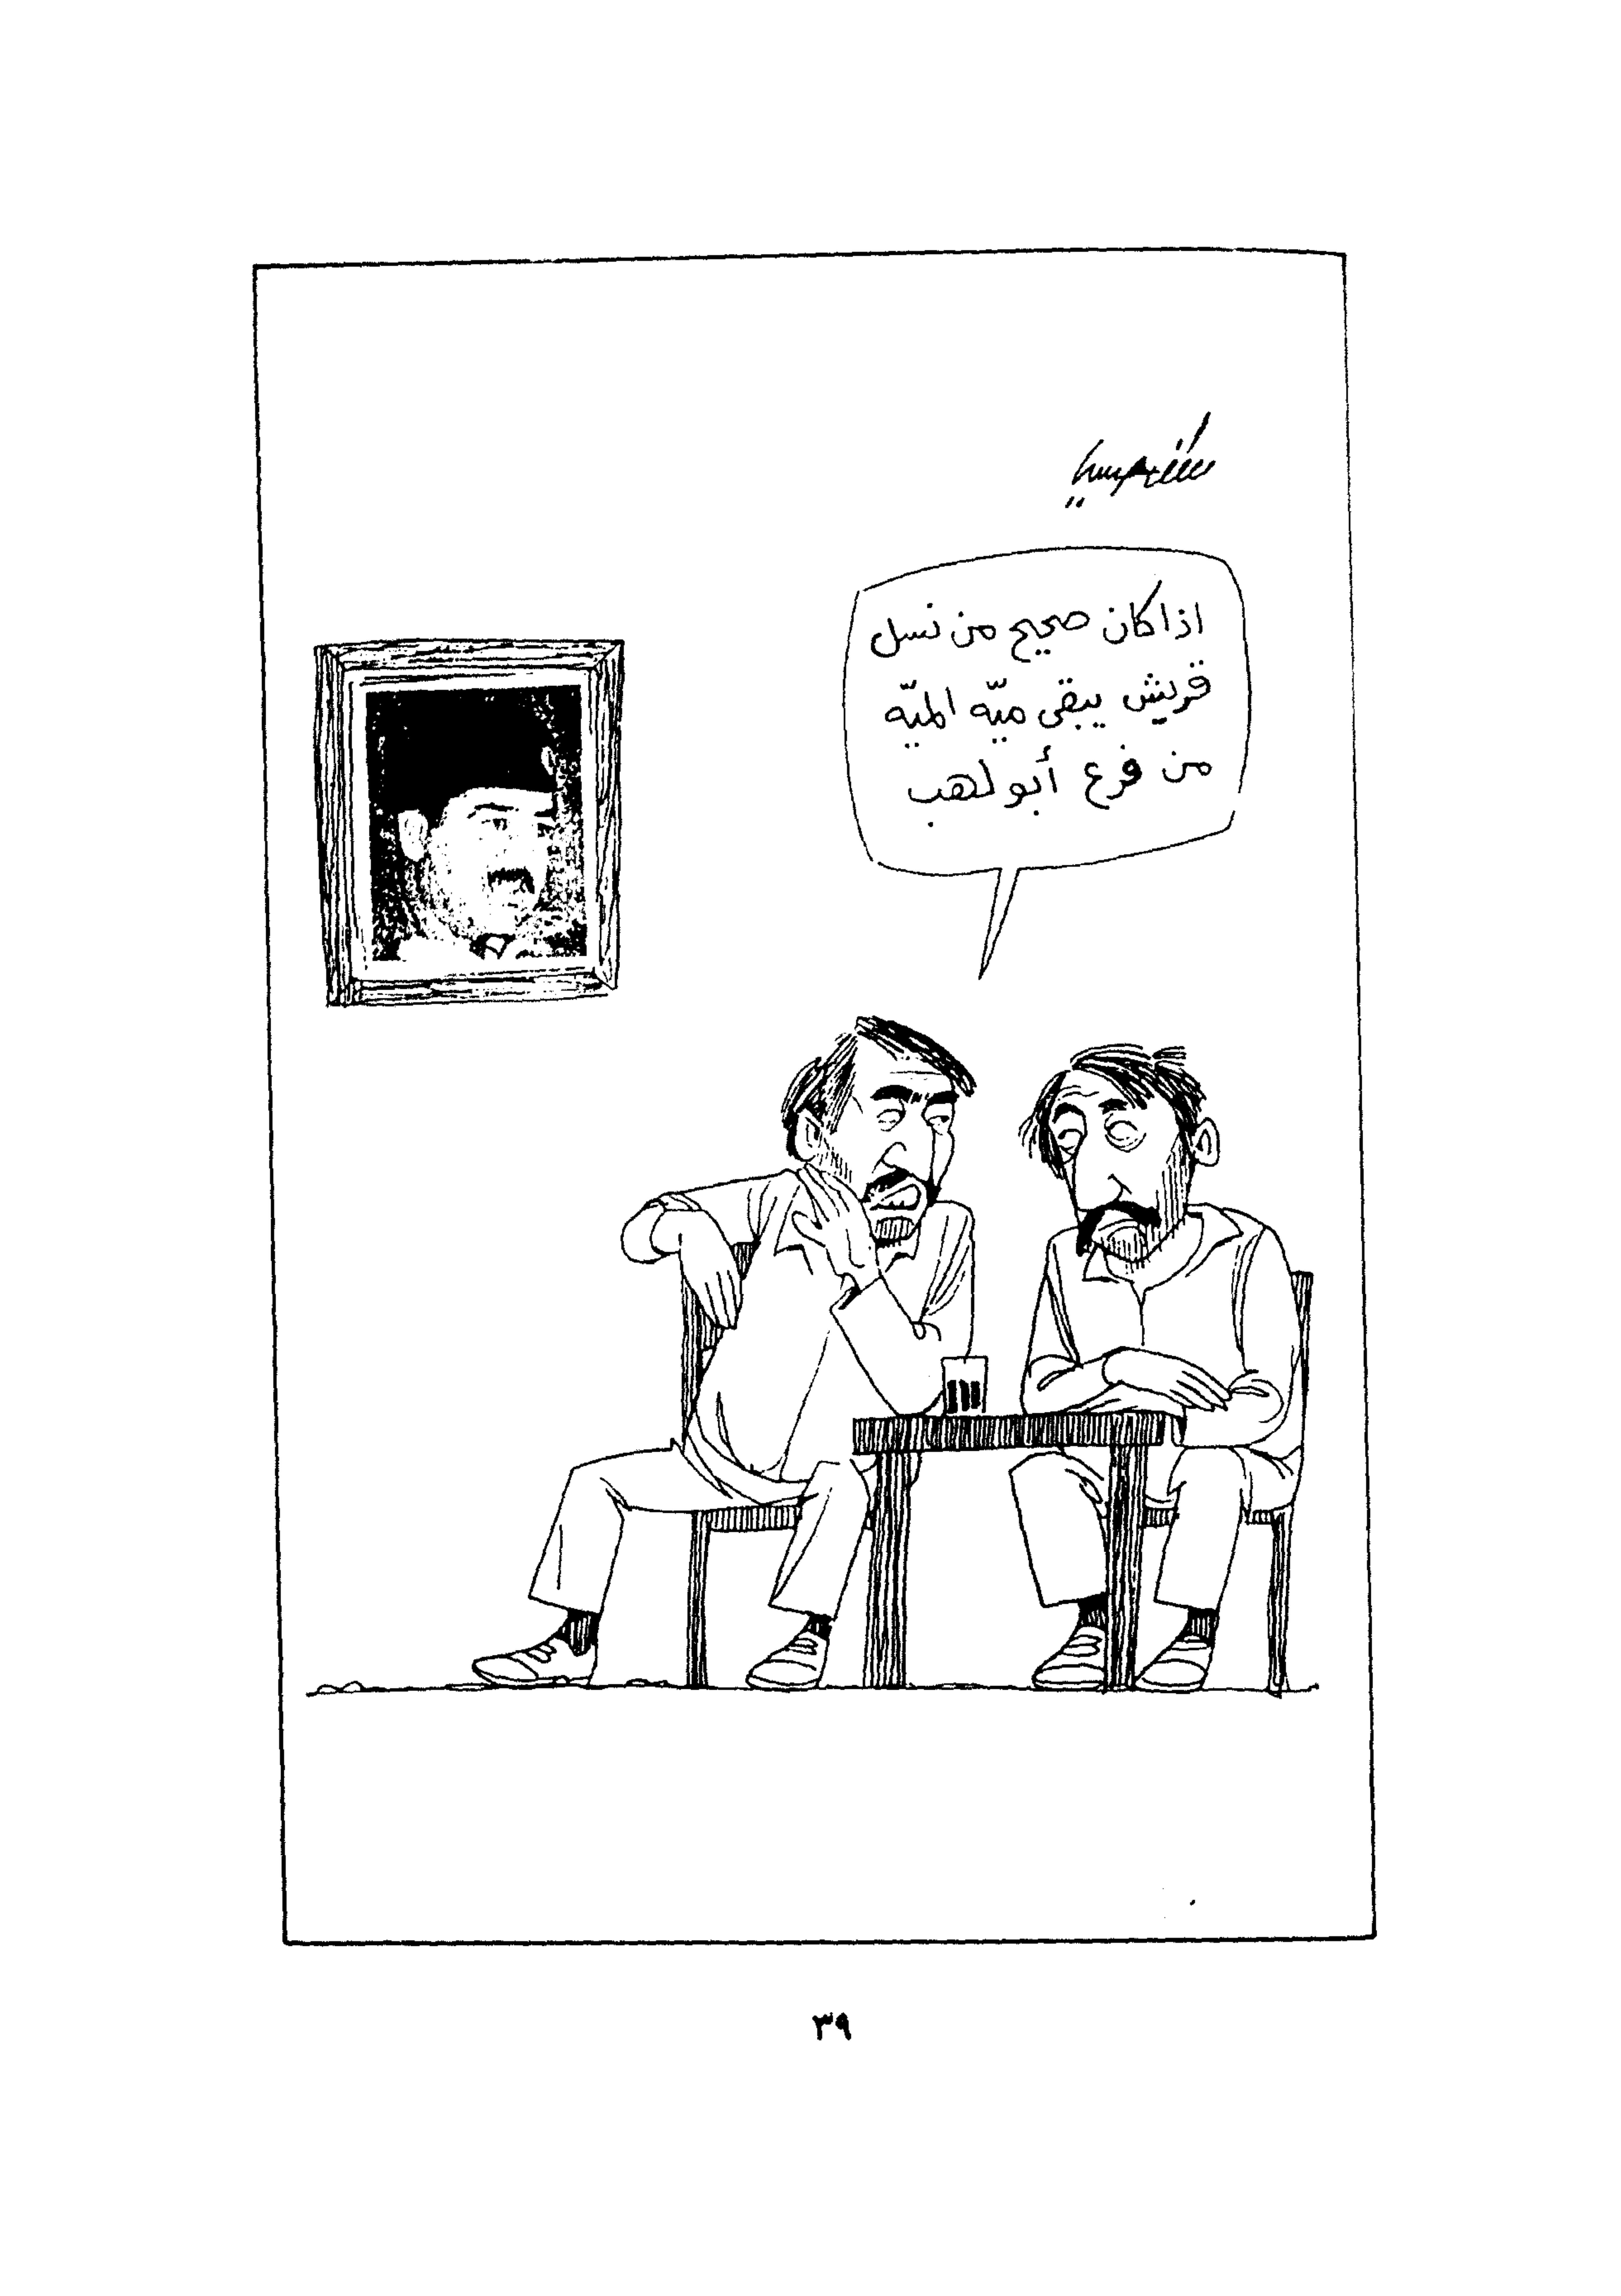 اذا كان صحيح من نسل
قريش يبقى ميّه الميّه
من فرع أبو لهب
٣٩